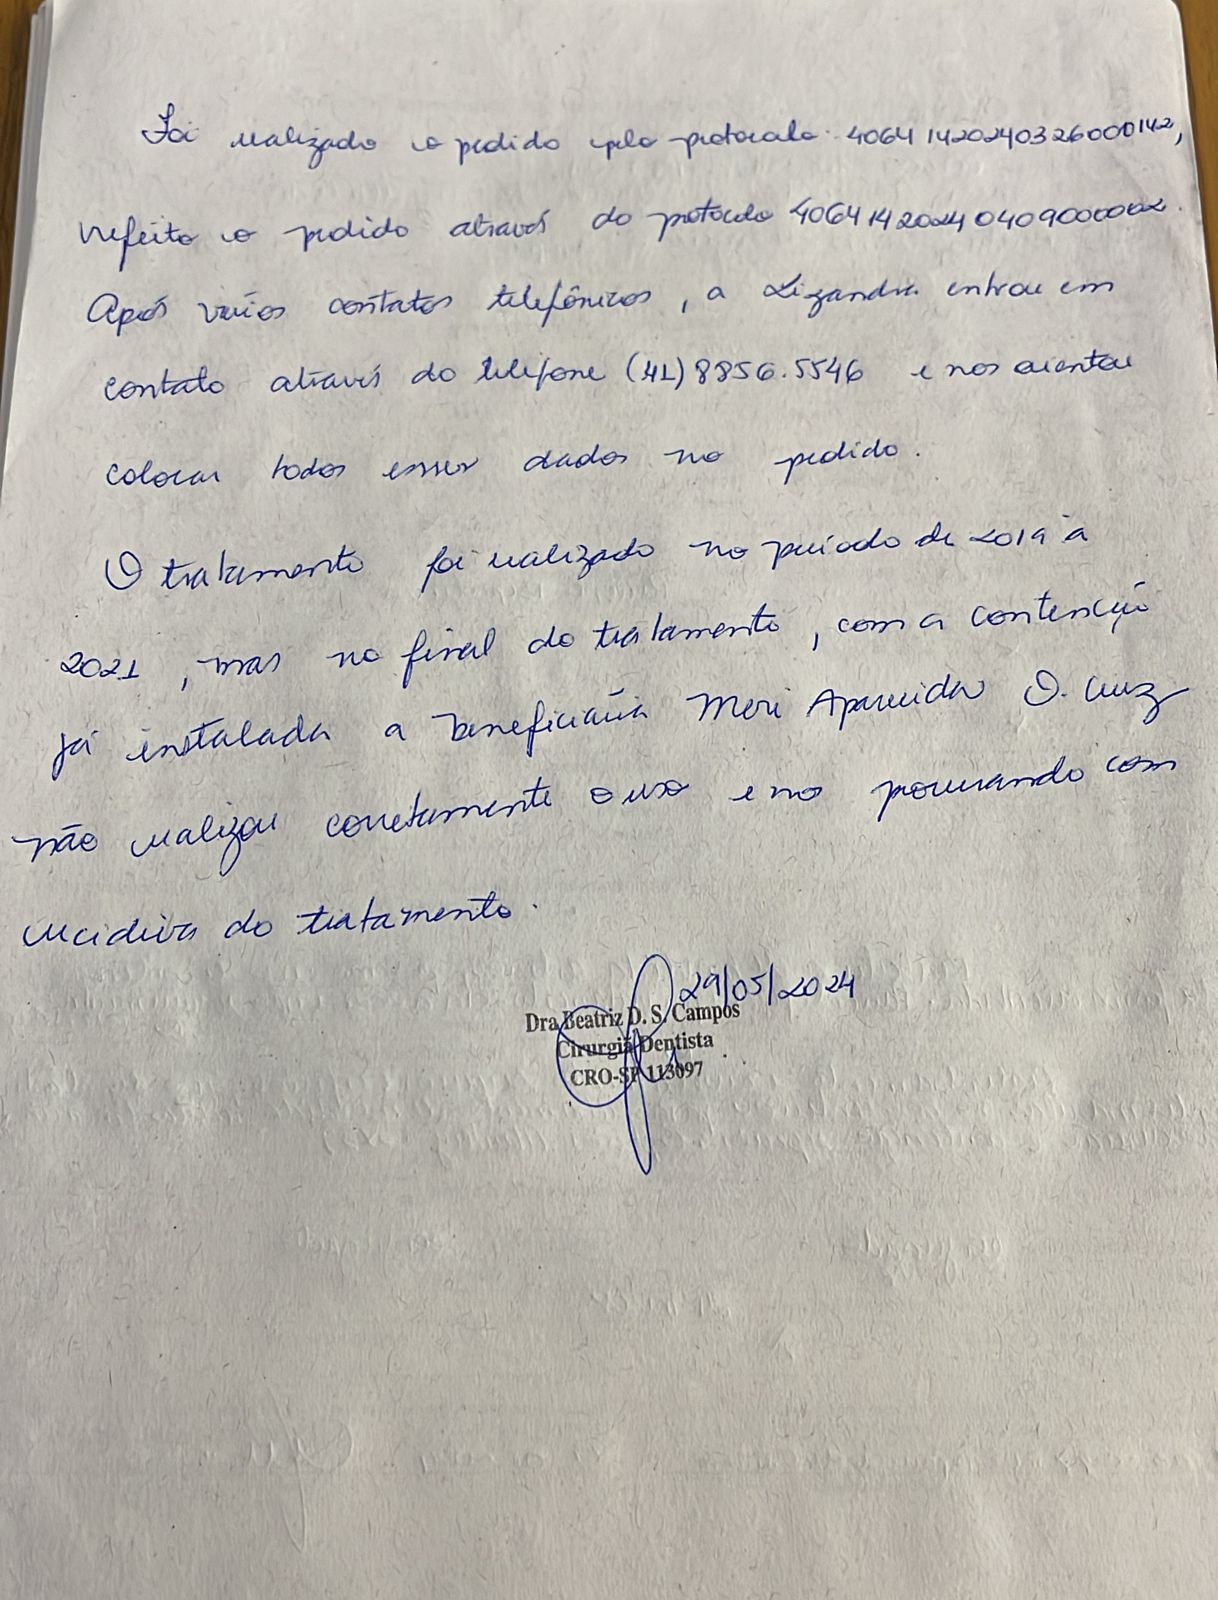 Foi realizado o pedido pelo protocolo: 40641420240326000142,
refeito o pedido através do protocolo 40641420240409000002.
Após vários contatos telefônicos, a Lizandra entrou em
contato através do telefone (41) 8856.5546 e nos orientou
colocar todos esses dados no pedido.
O tratamento foi realizado no período de 2019 à
2021, mas no final do tratamento, com a contenção
já instalada a beneficiária Meri Aparecida O. Cruz
não realizou corretamente o uso e nos procurando com
recidiva do tratamento.
29/05/2024
Dra Beatriz D. S. Campos
Cirurgiã Dentista
CRO-SP 113097